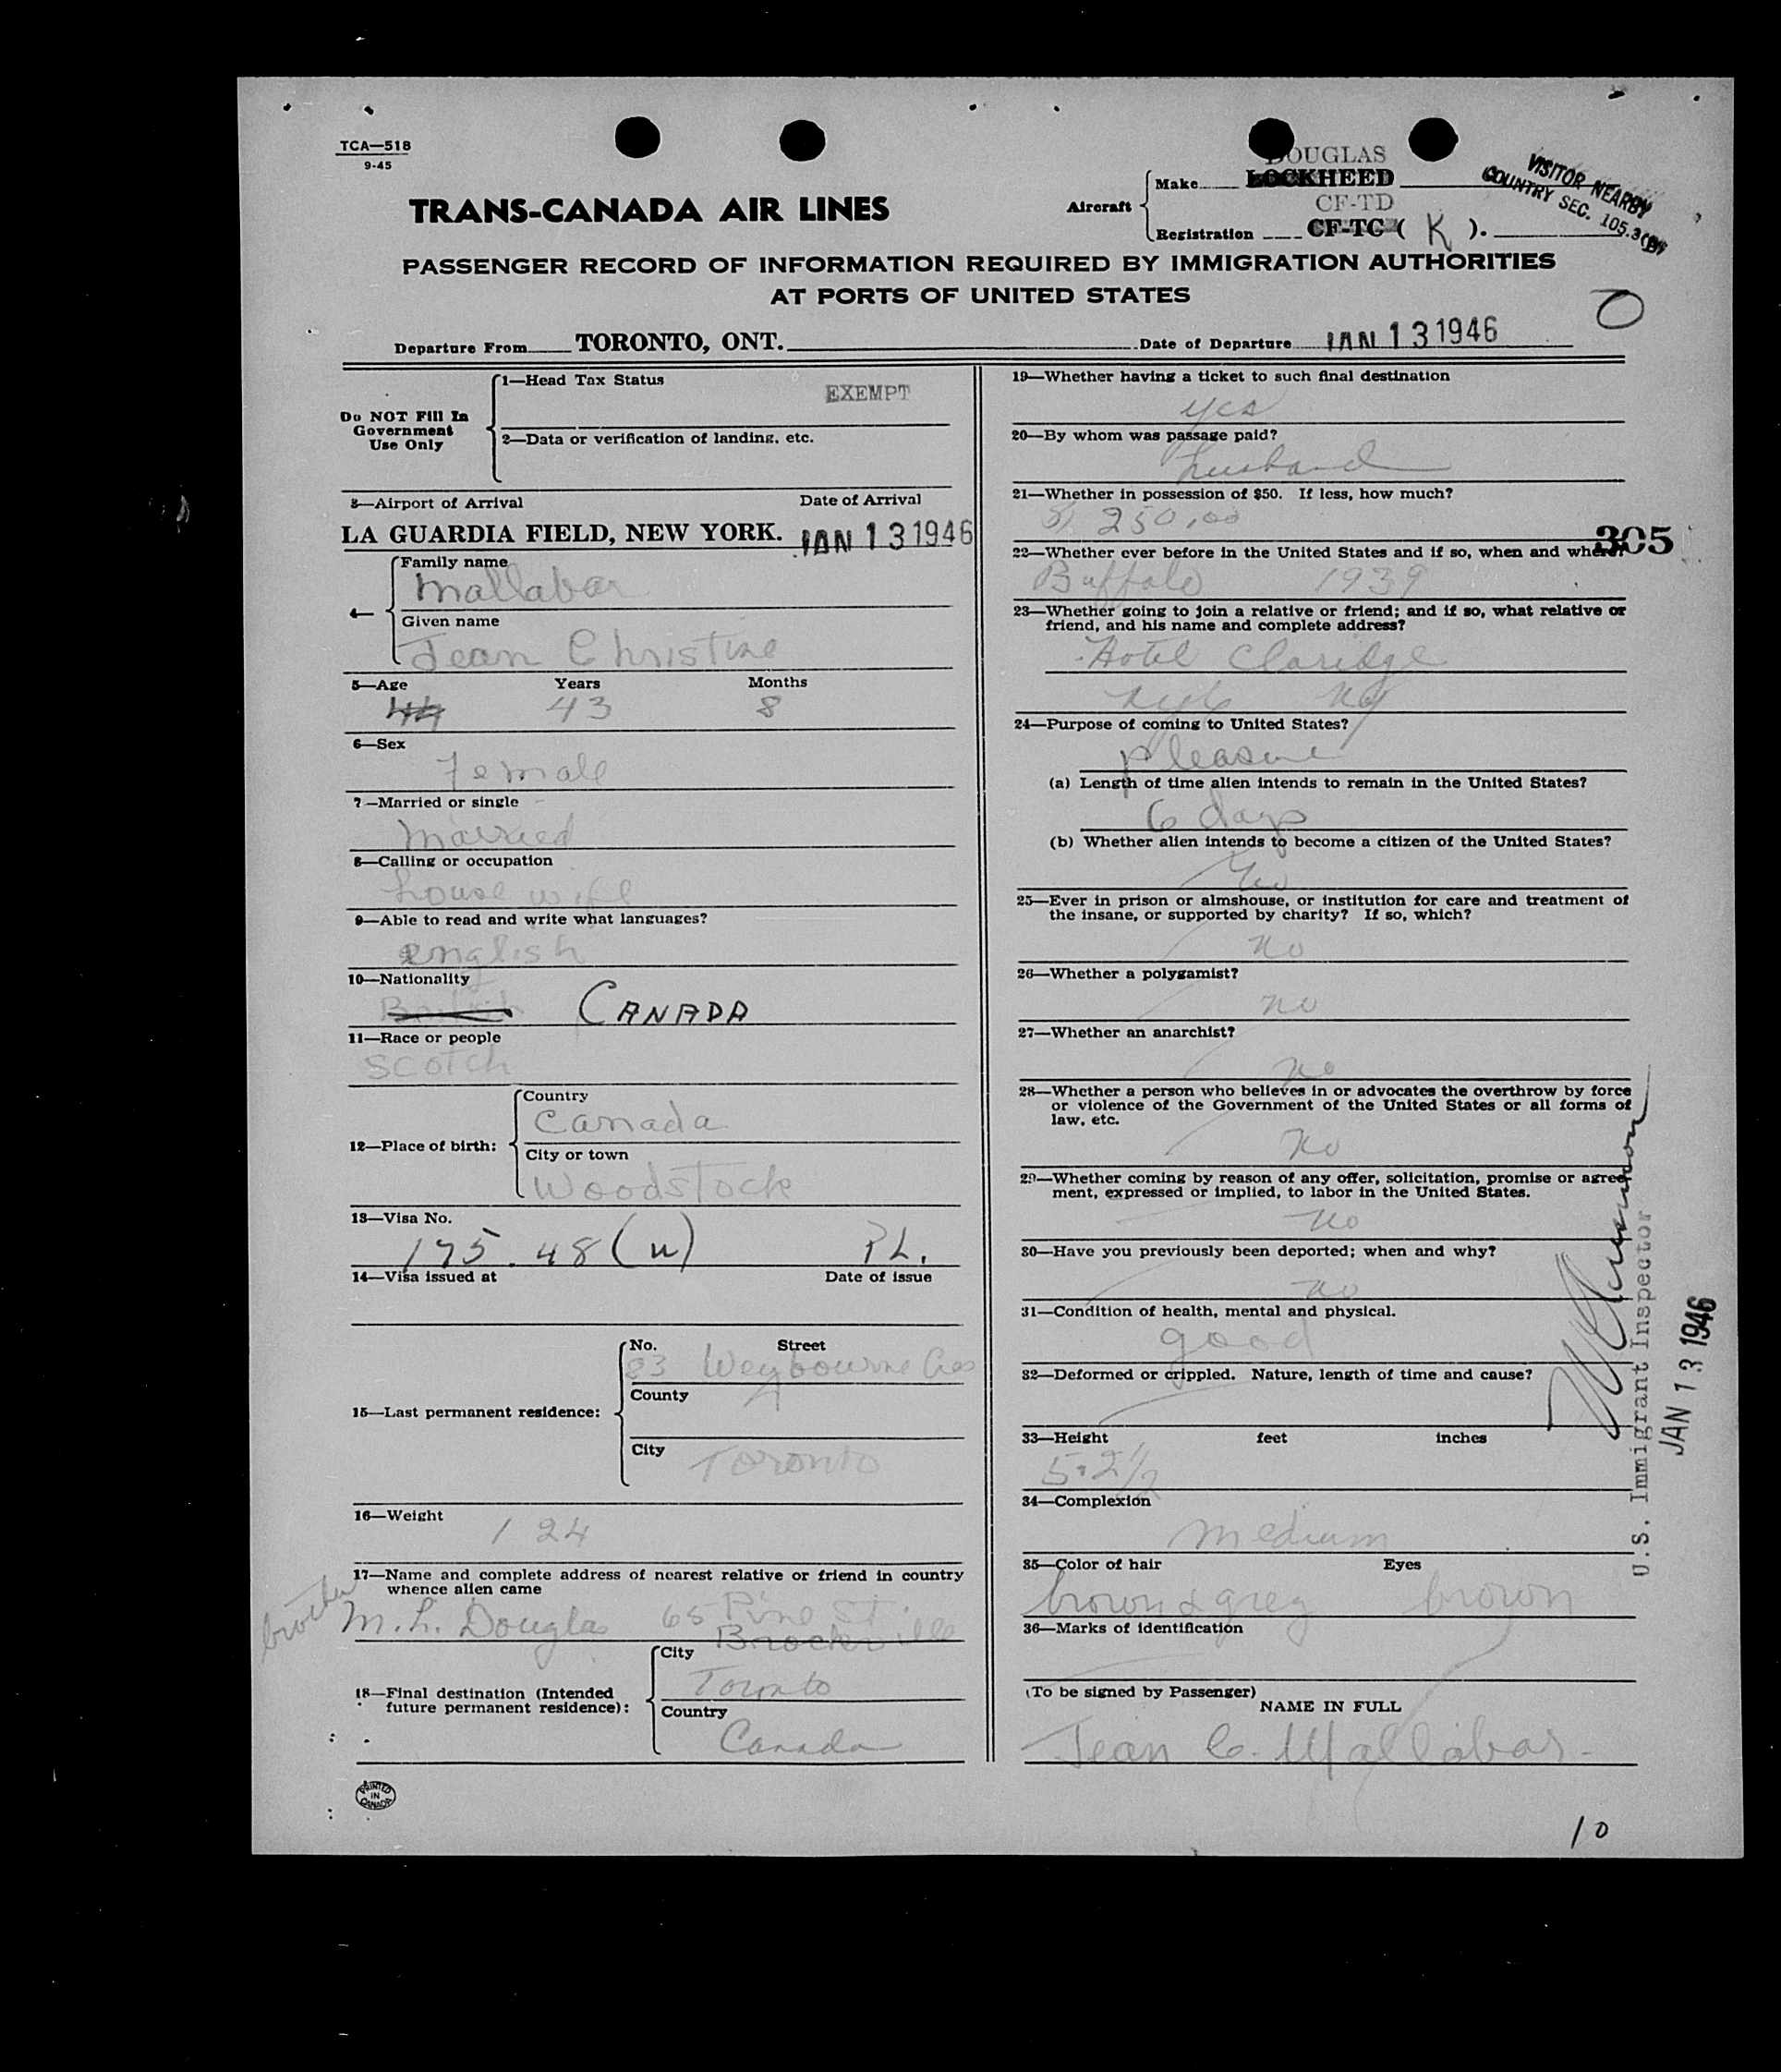 TCA—518
9-45
TRANS-CANADA AIR LINES
Aircraft
DOUGLAS
Make LOCKHEED
CF-TD
Registration CF-TC ( K ).
VISITOR NEARBY
COUNTRY SEC. 105.3(B)
PASSENGER RECORD OF INFORMATION REQUIRED BY IMMIGRATION AUTHORITIES
AT PORTS OF UNITED STATES
Departure From TORONTO, ONT. Date of Departure JAN 13 1946
0
Do NOT Fill In
Government
Use Only
1—Head Tax Status EXEMPT
2—Data or verification of landing, etc.
3—Airport of Arrival Date of Arrival
LA GUARDIA FIELD, NEW YORK. JAN 13 1946
4—
Family name
Mallabar
Given name
Jean Christine
5—Age Years Months
44 43 8
6—Sex
Female
7—Married or single
Married
8—Calling or occupation
housewife
9—Able to read and write what languages?
english
10—Nationality
British CANADA
11—Race or people
Scotch
12—Place of birth:
Country
Canada
City or town
Woodstock
13—Visa No.
175.48(u) PL.
14—Visa issued at Date of issue
15—Last permanent residence:
No. Street
83 Weybourne Cres
County
City
Toronto
16—Weight
124
17—Name and complete address of nearest relative or friend in country
whence alien came
brother M. L. Douglas 65 Pine St
Brockville
18—Final destination (Intended
future permanent residence):
City
Toronto
Country
Canada
PRINTED
IN
CANADA
19—Whether having a ticket to such final destination
yes
20—By whom was passage paid?
husband
21—Whether in possession of $50. If less, how much?
$ 250.00
305
22—Whether ever before in the United States and if so, when and where?
Buffalo 1939
23—Whether going to join a relative or friend; and if so, what relative or
friend, and his name and complete address?
Hotel Claridge
NYC NY
24—Purpose of coming to United States?
pleasure
(a) Length of time alien intends to remain in the United States?
6 days
(b) Whether alien intends to become a citizen of the United States?
25—Ever in prison or almshouse, or institution for care and treatment of
the insane, or supported by charity? If so, which?
no
26—Whether a polygamist?
no
27—Whether an anarchist?
no
28—Whether a person who believes in or advocates the overthrow by force
or violence of the Government of the United States or all forms of
law, etc.
no
29—Whether coming by reason of any offer, solicitation, promise or agree-
ment, expressed or implied, to labor in the United States.
no
30—Have you previously been deported; when and why?
no
31—Condition of health, mental and physical.
good
32—Deformed or crippled. Nature, length of time and cause?
33—Height feet inches
5.2½
34—Complexion
Medium
35—Color of hair Eyes
brown & grey brown
36—Marks of identification
(To be signed by Passenger)
NAME IN FULL
Jean C. Mallabar
U.S. Immigrant Inspector
JAN 13 1946
10